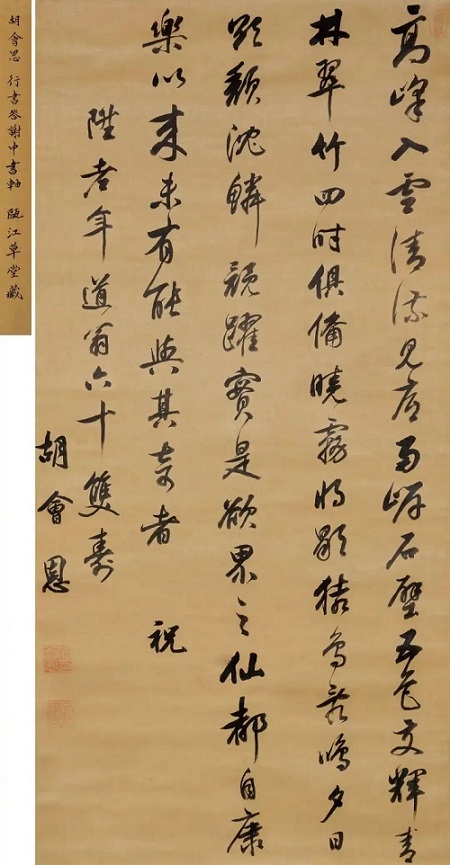 高峰入雲清流見底兩岸石壁五色交輝青
林翠竹四時俱備曉霧將歇猿鳥亂鳴夕日
欲頹沈鱗競躍實是欲界之仙都自康
樂以來未有能與其奇者 祝
陞老年道翁六十雙壽
胡會恩
胡會恩 行書答謝中書軸 甌江草堂藏